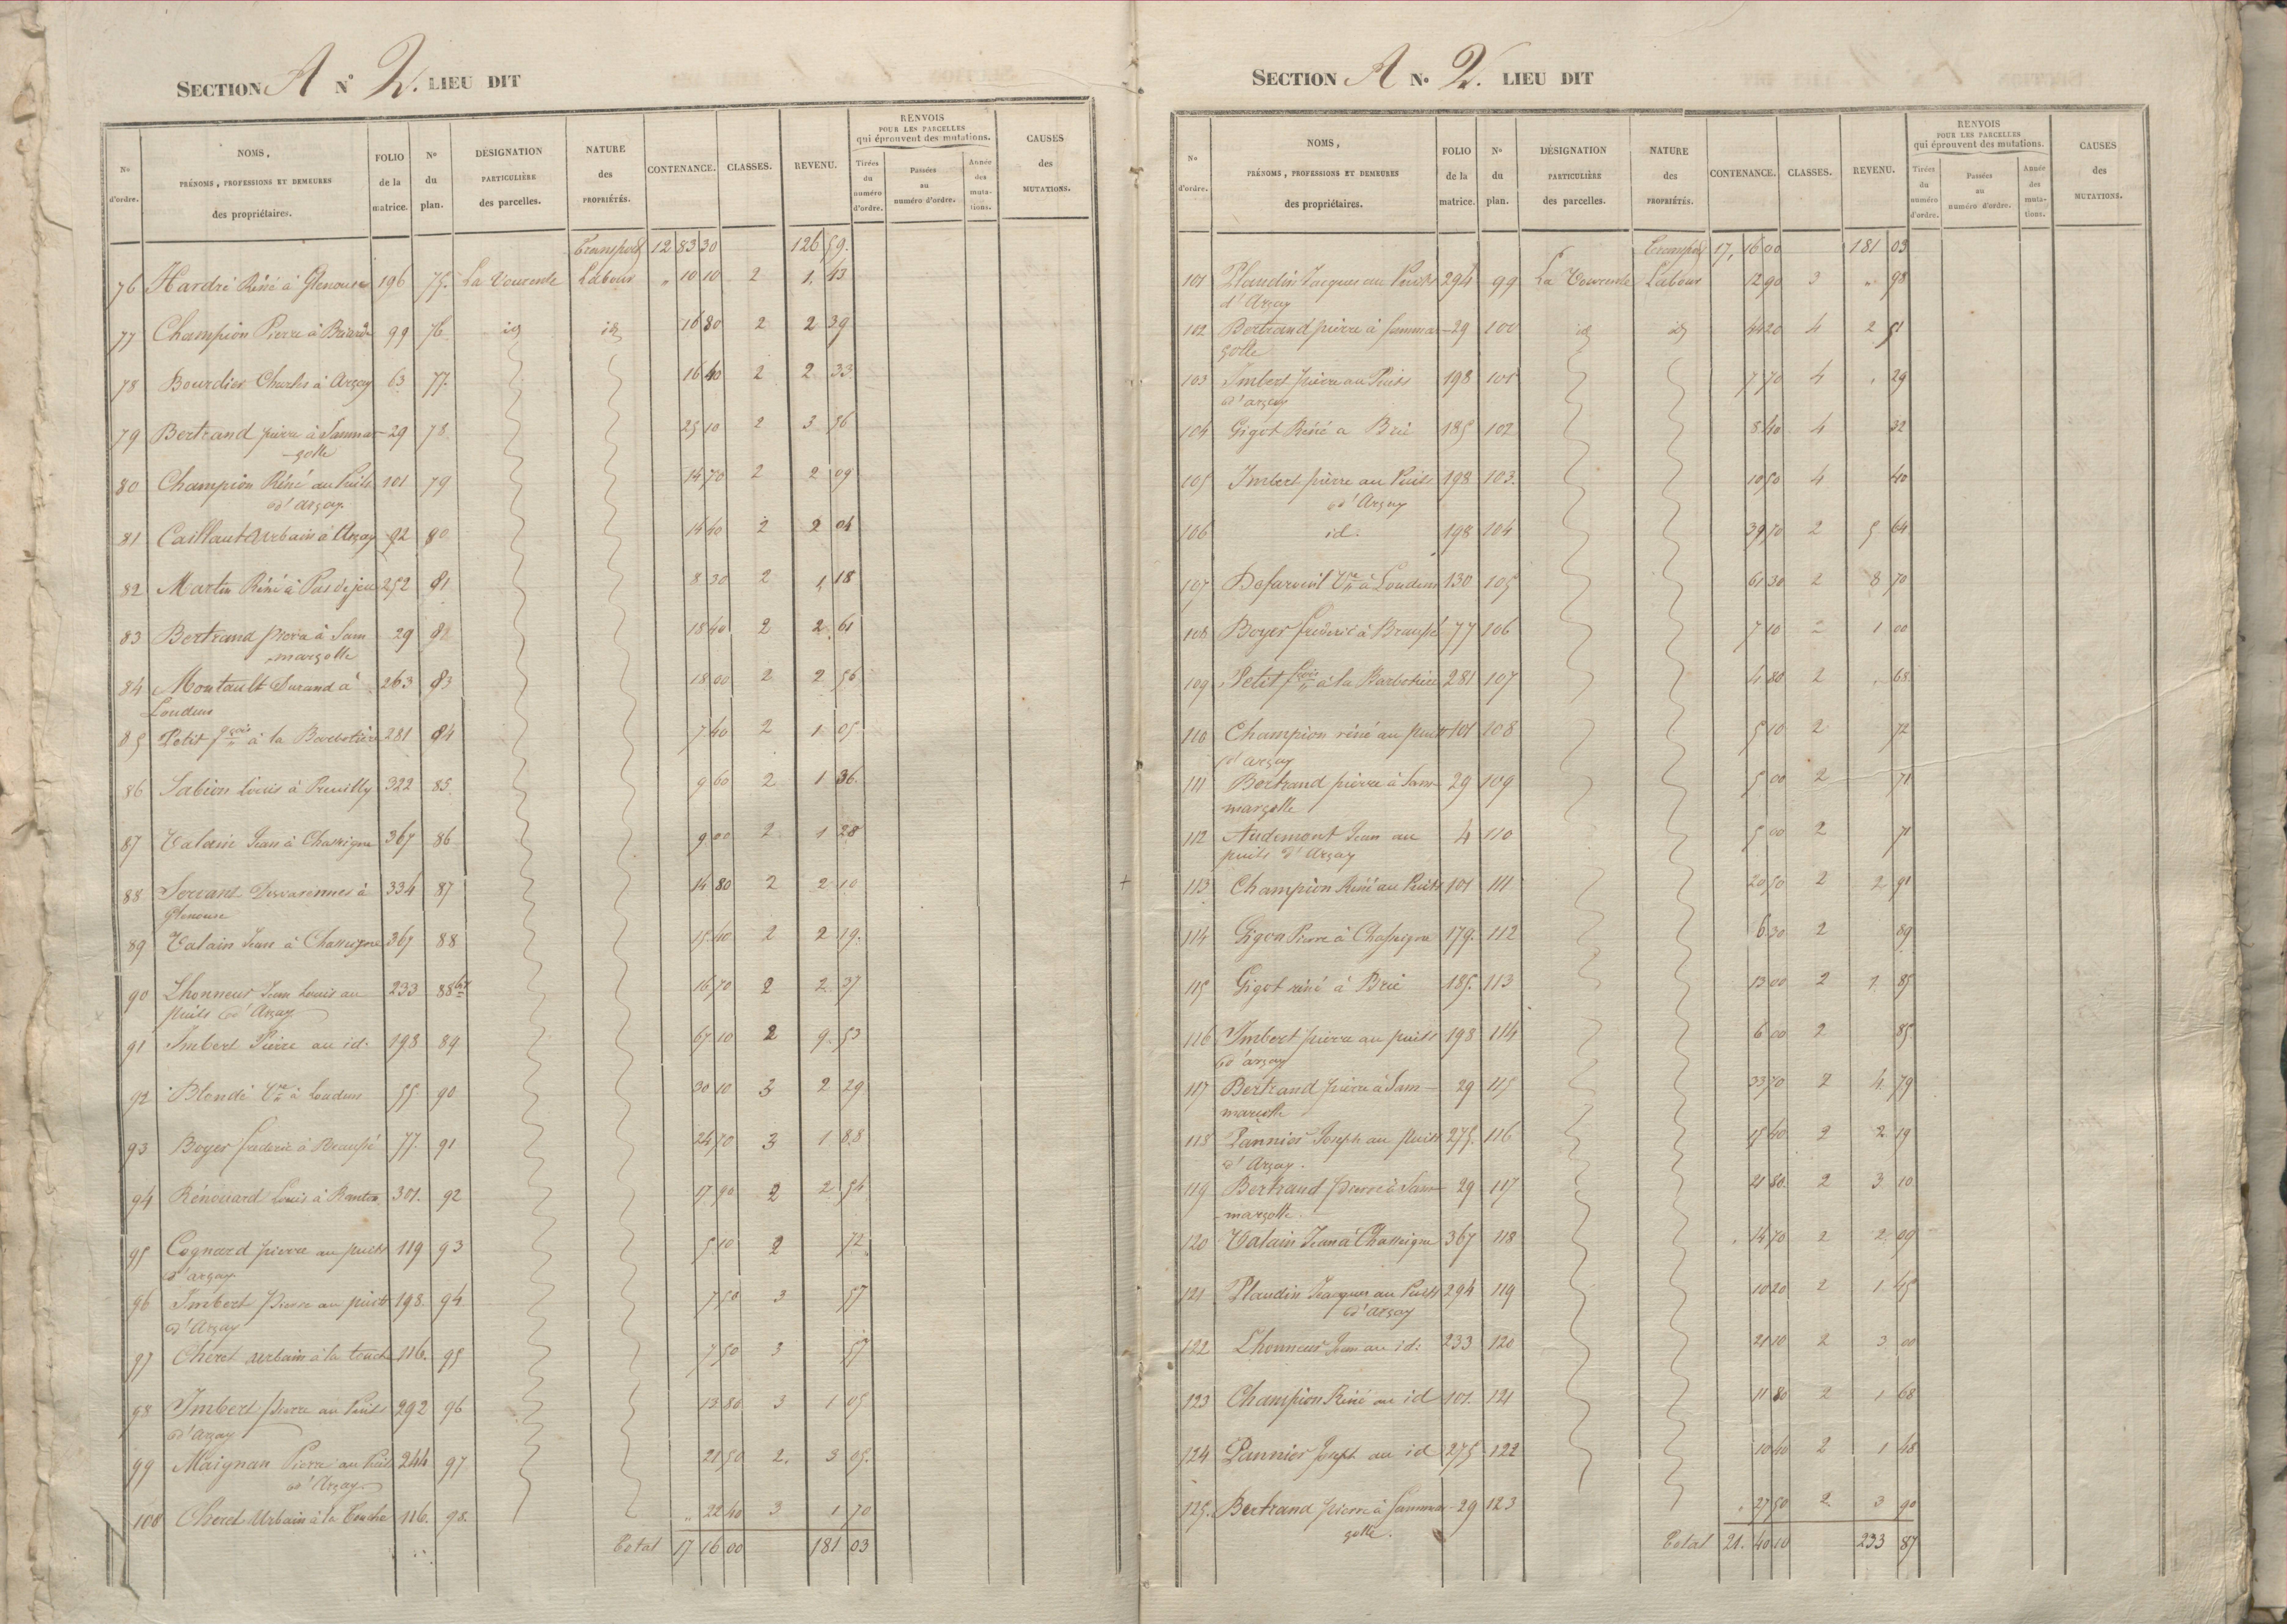 SECTION A N° 2. LIEU DIT
N° d'ordre. NOMS, PRÉNOMS, PROFESSIONS ET DEMEURES des propriétaires. FOLIO de la matrice. N° du plan. DÉSIGNATION PARTICULIÈRE des parcelles. NATURE des PROPRIÉTÉS. CONTENANCE. CLASSES. REVENU. RENVOIS POUR LES PARCELLES qui éprouvent des mutations. Tirées du numéro d'ordre. Passées au numéro d'ordre. Année des mutations. CAUSES des MUTATIONS.
Transport 12 83 30 126 59.
76 Hardré Réné à Glenouse 196 75. La Courende Labour " 10 10 2 1. 43
77 Champion Pierre à 99 76. id id 16 80 2 2 39
78 Bourdier Charles à Arçay 63 77. 16 40 2 2 33
79 Bertrand pierre à Sammar- 29 78. 25 10 2 3 56
-çolle
80 Champion Réné au Puits 101 79 14 70 2 2 09
d'Arçay.
81 Caillaut Urbain à Arçay 92 80 14 40 2 2 04
82 Martin Réné à Pas de jeu 252 81 8 30 2 1 18
83 Bertrand pierre à Sam 29 82 18 40 2 2 61
-marçolle
84 Montault Durand à 263 83 18 00 2 2 56
Loudun
85 Petit fçois à la Barbotiere 281 84 7 40 2 1 05
86 Sabion Louis à Preuilly 322 85 9 60 2 1 36.
87 Valain Jean à Chasseigne 367 86 9 00 2 1 28
88 Servant Desvarennes à 334 87 14 80 2 2 10
Glenouse
89 Valain Jean à Chasseigne 367 88 15 40 2 2 19.
90 Lhonneur Jean Louis au 233 88 bis 16 70 2 2 37
puits d'Arçay
91 Imbert Pierre au id. 198 89 67 10 2 9. 53
92 Blondé Vve à Loudun 55 90 30 10 3 2 29
93 Boyer frederic à Beausse 77. 91 24 70 3 1 88
94 Rénouard Louis à Ranton 301. 92 17 90 2 2 54
95 Cognard pierre au puits 119 93 5 10 2 72
d'arçay
96 Imbert Pierre au puits 198. 94 7 50 3 57
d'Arçay
97 Cheret urbain à la touche 116. 95 7 50 3 57
98 Imbert pierre au Puits 292 96 13 80 3 1 05
d'Arçay
99 Maignan Pierre au Puits 244 97 21 50 2. 3 05.
d'Arçay
100 Cheret Urbain à la Touche 116. 98. " 22 40 3 1 70
Total 17 16 00 181 03
SECTION A N° 2. LIEU DIT
N° d'ordre. NOMS, PRÉNOMS, PROFESSIONS ET DEMEURES des propriétaires. FOLIO de la matrice. N° du plan. DÉSIGNATION PARTICULIÈRE des parcelles. NATURE des PROPRIÉTÉS. CONTENANCE. CLASSES. REVENU. RENVOIS POUR LES PARCELLES qui éprouvent des mutations. Tirées du numéro d'ordre. Passées au numéro d'ordre. Année des mutations. CAUSES des MUTATIONS.
Transport 17, 16 00 181 03
101 Plaudin Jacques au Puits 294 99 La Courende Labour 12 90 3 " 98
d'Arçay
102 Bertrand pierre à Sammar- 29 100 id id 44 20 4 2 51
çolle
103 Imbert pierre au Puits 198 101 7 70 4 29
d'arçay
104 Gigot Réné a Brié 185 102 8 40 4 32
105 Imbert pierre au Puits 198 103. 10 50 4 40
d'Arçay
106 id. 198 104 39 70 2 5 64
107 Vve à Loudun 130 105 61 30 2 8 70
108 Boyer frederic à Beausse 77 106 7 10 2 1 00
109 Petit fçois à la Barbotiere 281 107 4 80 2 68
110 Champion réné au puits 101 108 5 10 2 72
d'arçay
111 Bertrand pierre à Sam- 29 109 5 00 2 71
marçolle
112 Audemont Jean au 4 110 5 00 2 71
puits d'Arçay
113 Champion Réné au Puits 101 111 20 50 2 2 91
114 Gigon Pierre à Chasseigne 179. 112 6 30 2 89
115 Gigot réné à Brié 185. 113 13 00 2 1. 85
116 Imbert pierre au puits 198 114 6 00 2 85
d'arçay
117 Bertrand pierre à Sam- 29 115 33 70 2 4 79
marçolle
118 Pannier Joseph au Puits 275. 116 15 40 2 2 19
d'Arçay.
119 Bertrand pierre à Sam- 29 117 21 80. 2 3 10
-marçolle.
120 Valain Jean à Chasseigne 367 118 14 70 2 2 09
121 Plaudin Jacques au Puits 294 119 10 20 2 1 45
d'Arçay
122 Lhonneur Jean au id. 233 120 21 10 2 3 00
123 Champion Réné au id 101. 121 11 80 2 1 68
124 Pannier Joseph au id 275 122 10 40 2 1 48
125. Bertrand pierre à Sammar- 29 123 27 50 2 3 90
çolle.
Total 21. 40 10 233 87